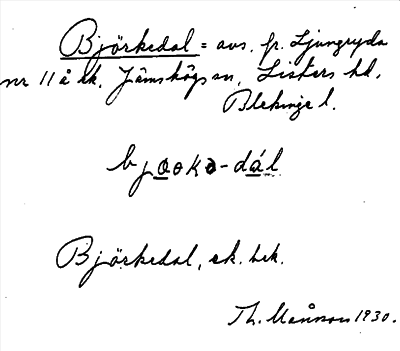 Björkedal = avs. fr. Ljungryda
nr 11 å ek. Jämshögs sn, Listers hd,
Blekinge l.
bjöoka-dál
Björkedal, ek. bek.
Th. Månsson 1930.